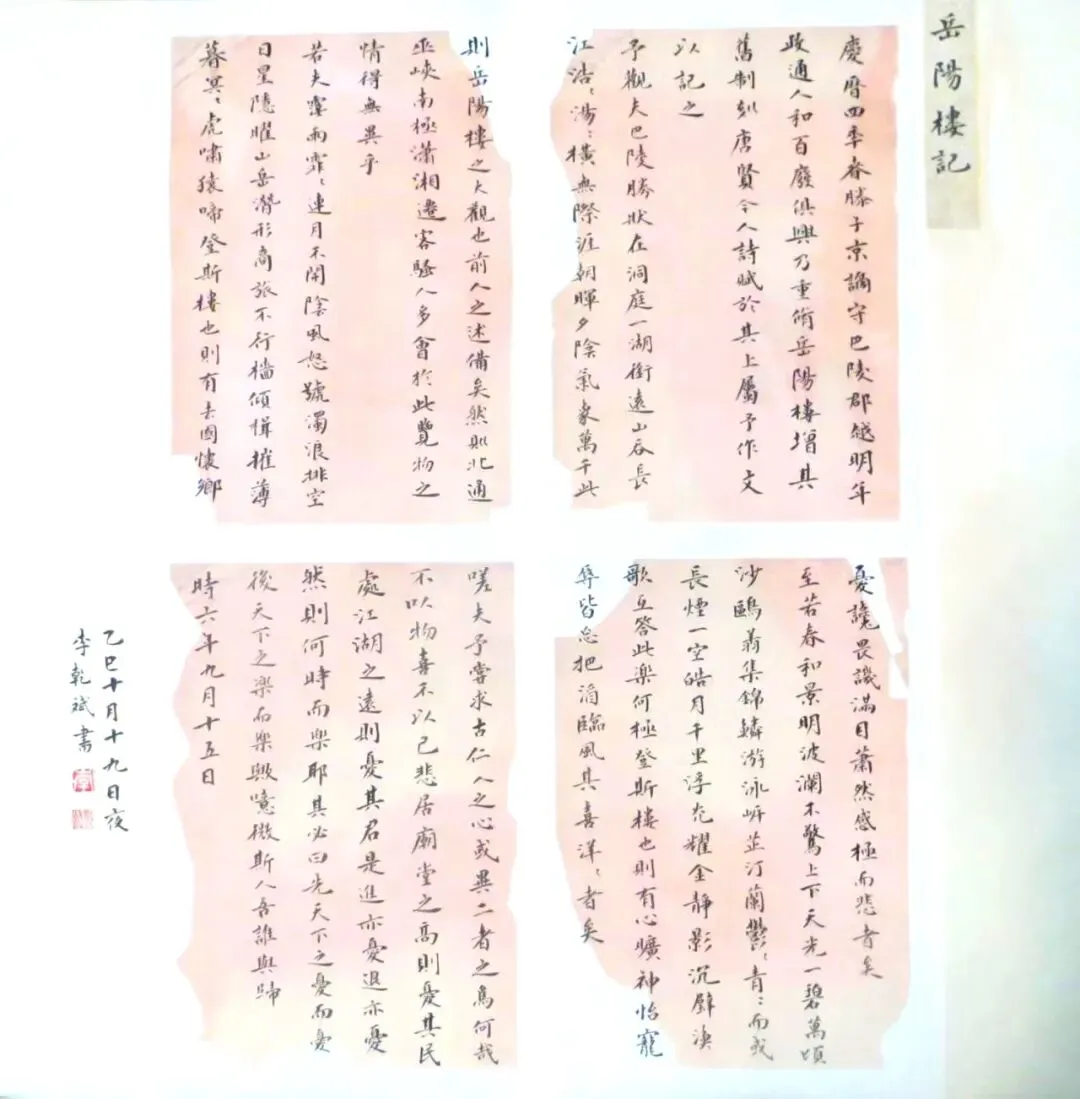 岳陽樓記
慶曆四年春滕子京謫守巴陵郡越明年
政通人和百廢俱興乃重脩岳陽樓增其
舊制刻唐賢今人詩賦於其上屬予作文
以記之
予觀夫巴陵勝狀在洞庭一湖銜遠山吞長
江浩〻湯〻橫無際涯朝暉夕陰氣象萬千此
則岳陽樓之大觀也前人之述備矣然則北通
巫峽南極瀟湘遷客騷人多會於此覽物之
情得無異乎
若夫霪雨霏〻連月不開陰風怒號濁浪排空
日星隱曜山岳潛形商旅不行檣傾楫摧薄
暮冥〻虎嘯猿啼登斯樓也則有去國懷鄉
憂讒畏譏滿目蕭然感極而悲者矣
至若春和景明波瀾不驚上下天光一碧萬頃
沙鷗翔集錦鱗游泳岸芷汀蘭鬱〻青〻而或
長煙一空皓月千里浮光耀金靜影沉璧漁
歌互答此樂何極登斯樓也則有心曠神怡寵
辱皆忘把酒臨風其喜洋〻者矣
嗟夫予嘗求古仁人之心或異二者之爲何哉
不以物喜不以己悲居廟堂之高則憂其民
處江湖之遠則憂其君是進亦憂退亦憂
然則何時而樂耶其必曰先天下之憂而憂
後天下之樂而樂歟噫微斯人吾誰與歸
時六年九月十五日
乙巳十月十九日夜
李乾斌書